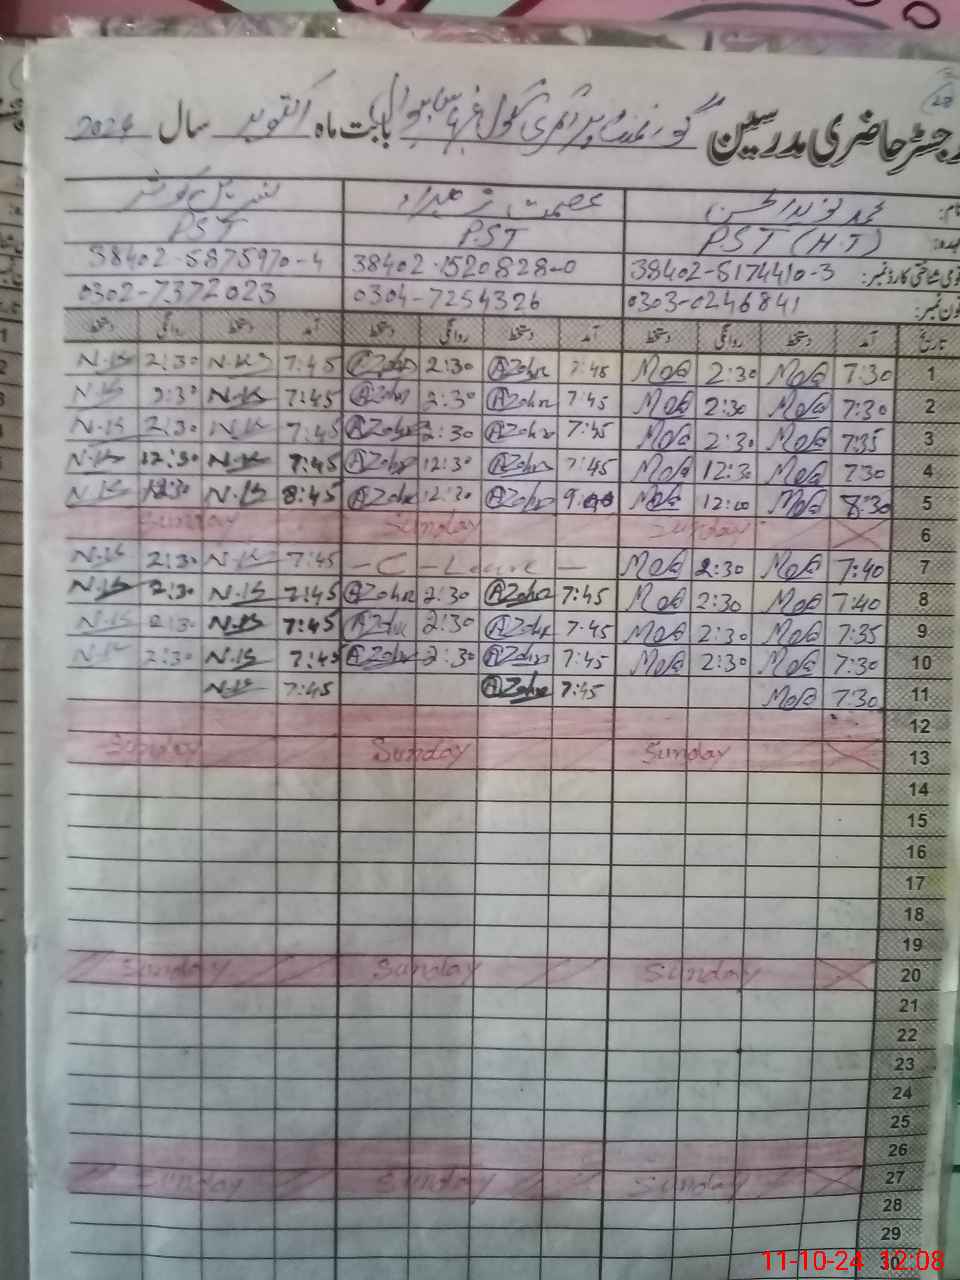 رجسٹر حاضری مدرسین گورنمنٹ پرائمری سکول بابت ماہ اکتوبر سال 2024
28
نام: محمد نوید الحسن عصمت زہرا نسرین کوثر
عہدہ: P.S.T (H.T) P.S.T P.S.T
قومی شناختی کارڈ نمبر: 38402-5174410-3 38402-1520828-0 38402-5875970-4
فون نمبر: 0303-0246841 0304-7254326 0302-7372023
تاریخ آمد دستخط روانگی دستخط آمد دستخط روانگی دستخط آمد دستخط روانگی دستخط
1 7:30 2:30 7:45 AZohra 2:30 7:45 N.K 2:30 N.K
2 7:30 2:30 7:45 AZohra 2:30 7:45 N.K 2:30 N.K
3 7:35 2:30 7:45 AZohra 2:30 7:45 N.K 2:30 N.K
4 7:30 12:30 7:45 AZohra 12:30 7:45 N.K 12:30 N.K
5 8:30 12:00 AZohra 8:45 N.K 12:30 N.K
6 Sunday Sunday Sunday
7 7:40 2:30 - C - Leave - 7:45 N.K 2:30 N.K
8 7:40 2:30 7:45 AZohra 2:30 7:45 N.K 2:30 N.K
9 7:35 2:30 7:45 AZohra 2:30 7:45 N.K 2:30 N.K
10 7:30 2:30 7:45 AZohra 2:30 7:45 N.K 2:30 N.K
11 7:30 7:45 AZohra 7:45 N.K
12
13 Sunday Sunday Sunday
14
15
16
17
18
19
20 Sunday Sunday Sunday
21
22
23
24
25
26
27 Sunday Sunday Sunday
28
29
30
11-10-24 12:08